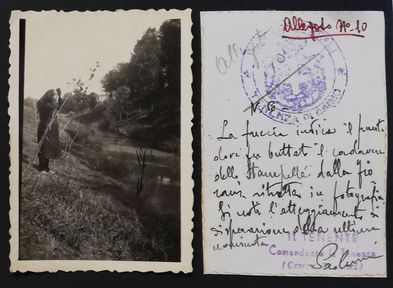 Allegato Nº 10
N.B.
La freccia indica il punto
dove fu buttato il cadavere
dello Stampella dalla gio
vane ritratta in fotografia.
Si noti l'atteggiamento di
disperazione della ultima
nominata
IL TENENTE
Comandante la Tenenza